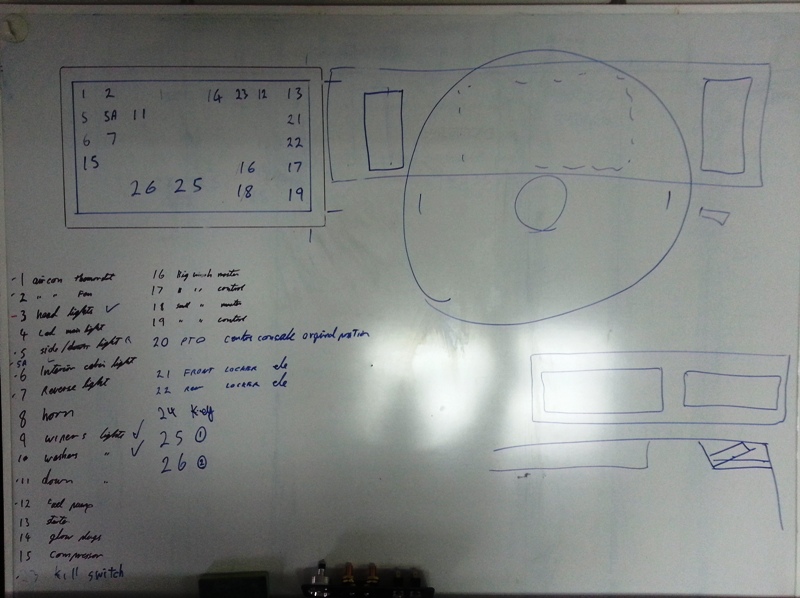 1 2 14 23 12 13
5 5A 11 21
6 7 22
15 16 17
26 25 18 19
1 aircon thermostat
2 " " Fan
3 head lights ✓
4 Led main light
5 side/down light
5A
6 Interior cabin light
7 Reverse light
8 horn
9 wipers lights ✓
10 washers " ✓
11 down "
12 fuel pump
13 starter
14 glow plugs
15 compressor
kill switch
16 Big winch master
17 " " control
18 small " master
19 " " control
20 PTO center console original position
21 FRONT LOCKER ele
22 rear LOCKER ele
24 Key
25 ①
26 ②